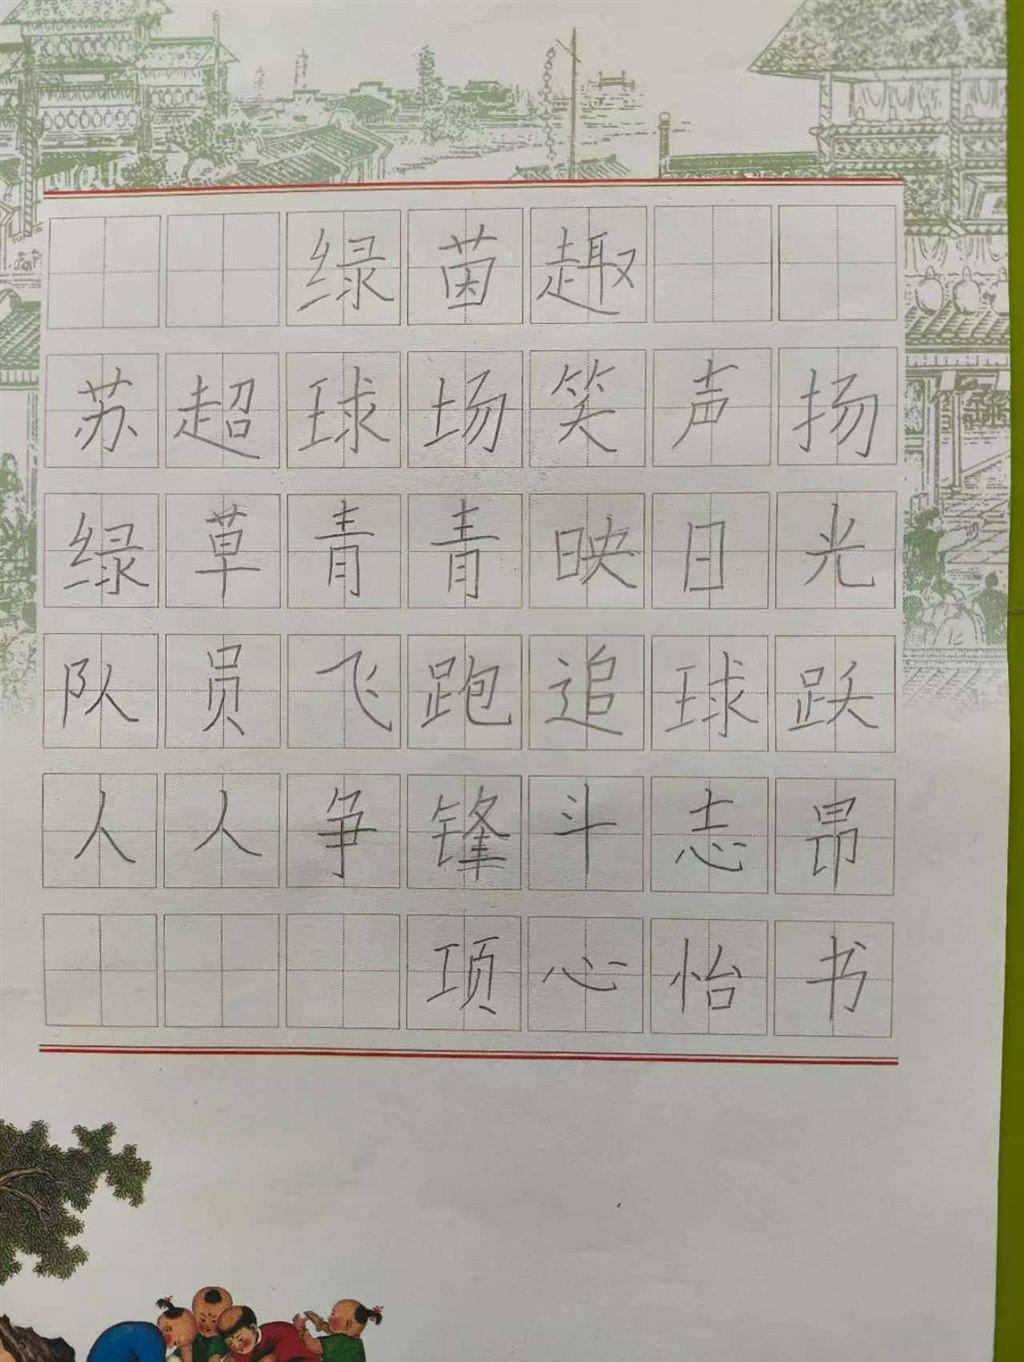 绿茵趣
苏超球场笑声扬
绿草青青映日光
队员飞跑追球跃
人人争锋斗志昂
项心怡书